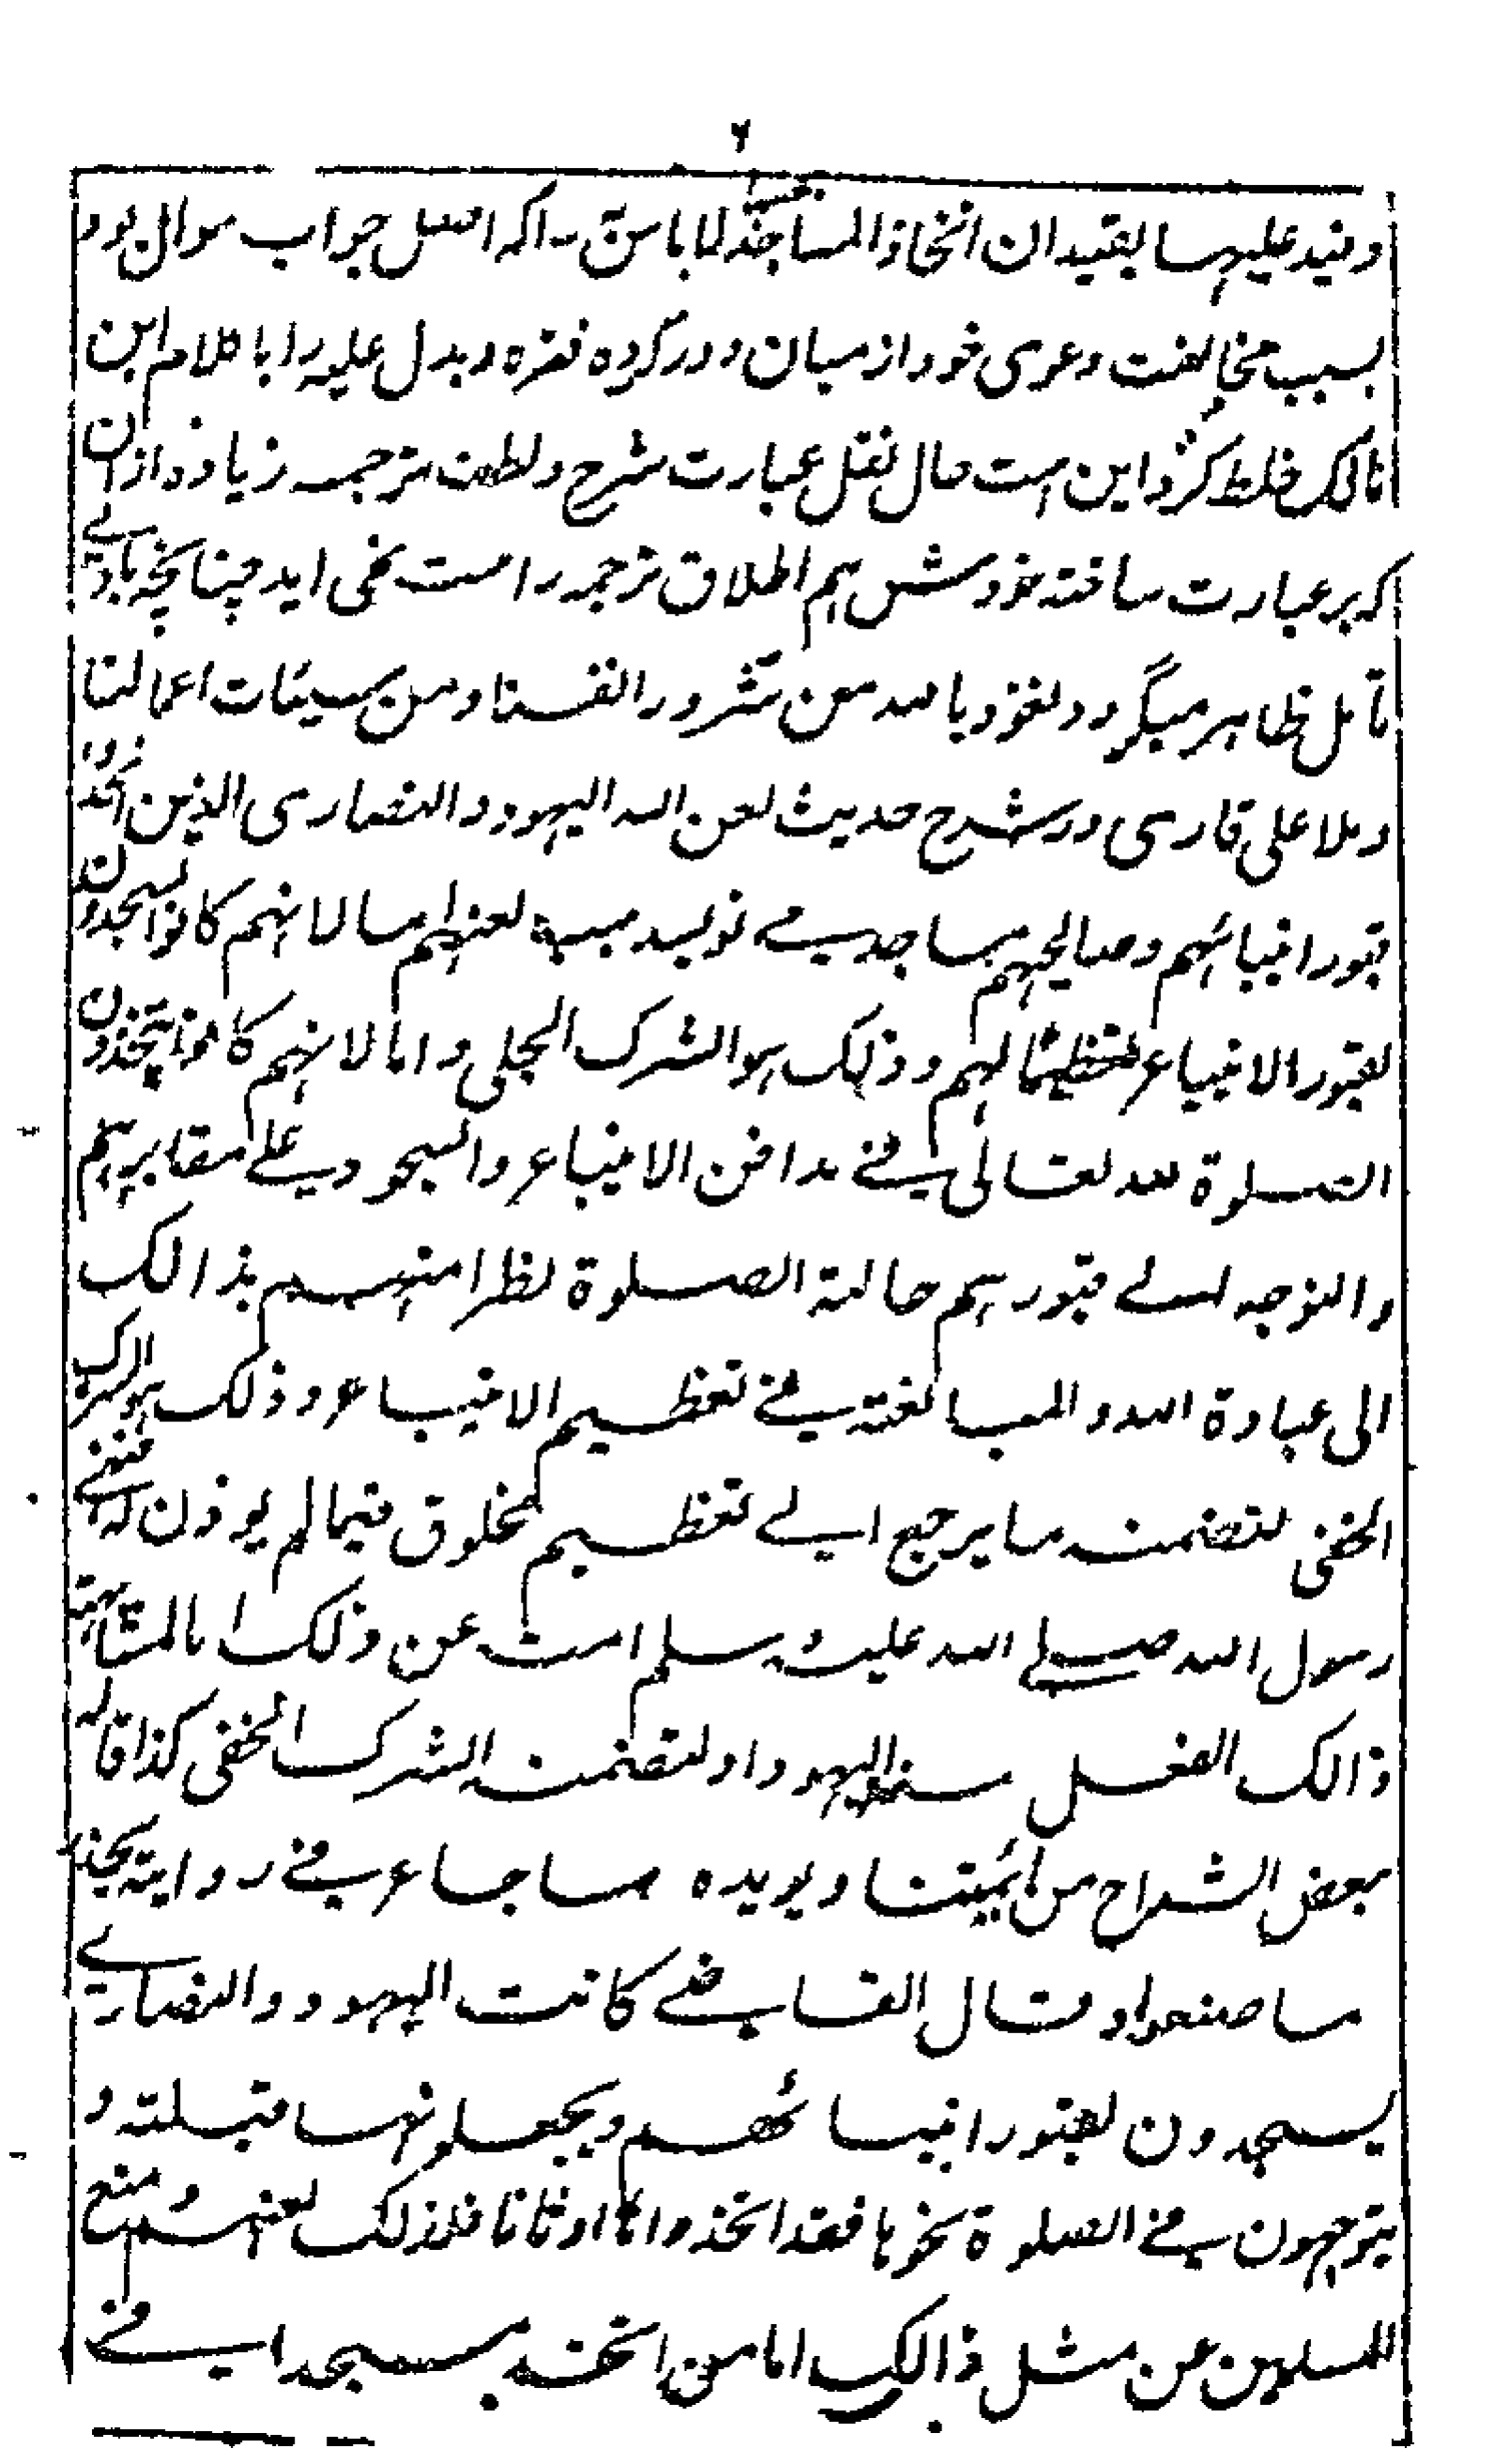 ۲
وقید علیهما یفید ان اتخاذ المساجد بجنبها لا باس به را که اصل جواب سوال بود
بسبب مخالفت دعوی خود از میان دور کرده فقره و یدل علیه را با کلام ابن
مالک خلط کرد این است حال نقل عبارت شرح و لطف ترجمه زیاده ازان
که بر عبارت ساخته خودش هم اطلاق ترجمه راست نمی اید چنانچه بادنے
تامل ظاهر میگردد نعوذ بالله من شرور انفسنا و من سیئات اعمالنا
و ملا علی قاری در شرح حدیث لعن الله الیهود و النصاری الذین اتخذوا
قبور انبیائهم و صالحیهم مساجد مے نویسد سبب لعنهم اما لانهم کانوا یسجدون
لقبور الانبیاء تعظیما لهم و ذلک هو الشرک الجلی و اما لانهم کانوا یتخذون
الصلوة لله تعالی فے مدافن الانبیاء و السجود علے مقابرهم
و التوجه الے قبورهم حالة الصلوة نظرا منهم بذالک
الی عبادة الله و المبالغة فے تعظیم الانبیاء و ذلک هو الشرک
الخفی لتضمنه ما یرجع الے تعظیم مخلوق فیما لم یوذن له فنهے
رسول الله صلے الله علیه وسلم امته عن ذلک اما لمشابهة
ذالک الفعل سنة الیهود او لتضمنه الشرک الخفی کذا قاله
بعض الشراح من ائمتنا و یویده ما جاء فے روایة یحذر
ما صنعوا و قال القاضے کانت الیهود و النصارے
یسجدون لقبور انبیائهم و یجعلونها قبلة و
یتوجهون فے الصلوة نحوها فقد اتخذوها اوثانا فلذلک لعنهم و منع
المسلمین عن مثل ذالک اما من اتخذ مسجدا فے